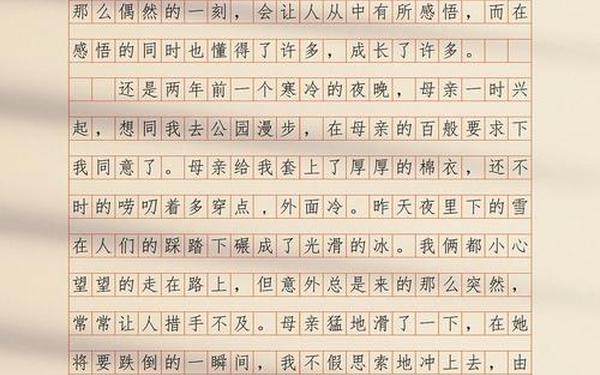 那么偶然的一刻，会让人从中有所感悟，而在
感悟的同时也懂得了许多，成长了许多。
还是两年前一个寒冷的夜晚，母亲一时兴
起，想同我去公园漫步，在母亲的百般要求下
我同意了。母亲给我套上了厚厚的棉衣，还不
时的唠叨着多穿点，外面冷。昨天夜里下的雪
在人们的踩踏下碾成了光滑的冰。我俩都小心
望望的走在路上，但意外总是来的那么突然，
常常让人措手不及。母亲猛地滑了一下，在她
将要跌倒的一瞬间，我不假思索地冲上去，由